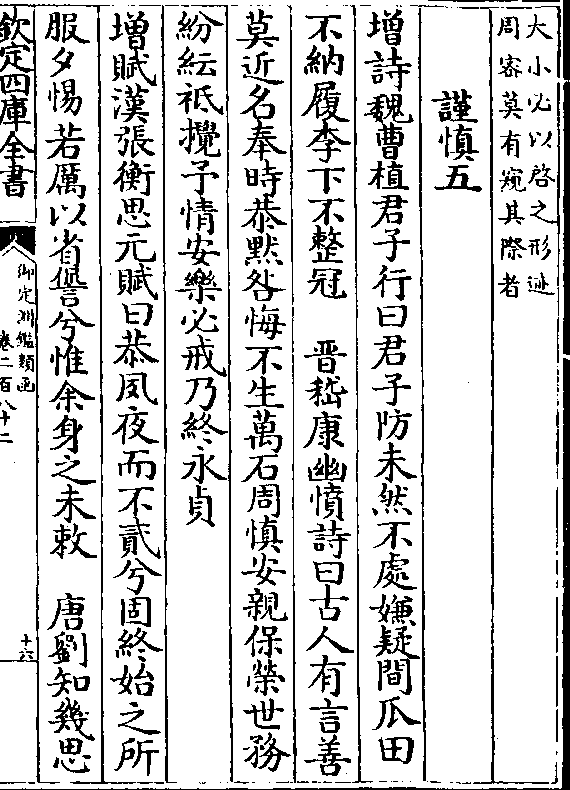 大小必以啓之形迹
周宻莫有窺其際者
謹慎五
增詩魏曹植君子行曰君子防未然不處嫌疑間瓜田
不納履李下不整冠　晋嵇康幽憤詩曰古人有言善
莫近名奉時恭黙咎悔不生萬石周慎安親保榮世務
紛紜袛攪予情安樂必戒乃終永貞
增賦漢張衡思元賦曰恭夙夜而不貳兮固終始之所
服夕惕若厲以省諐兮惟余身之未敕　唐劉知幾思
欽定四庫全書
御定淵鑑類函
卷二百八十二
十六